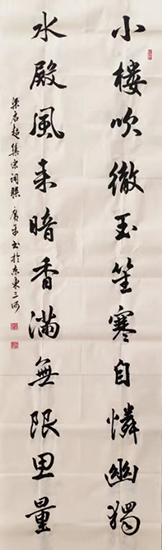 小樓吹徹玉笙寒自憐幽獨
水殿風來暗香滿無限思量
梁启超集宋词联 广平书於京東三河